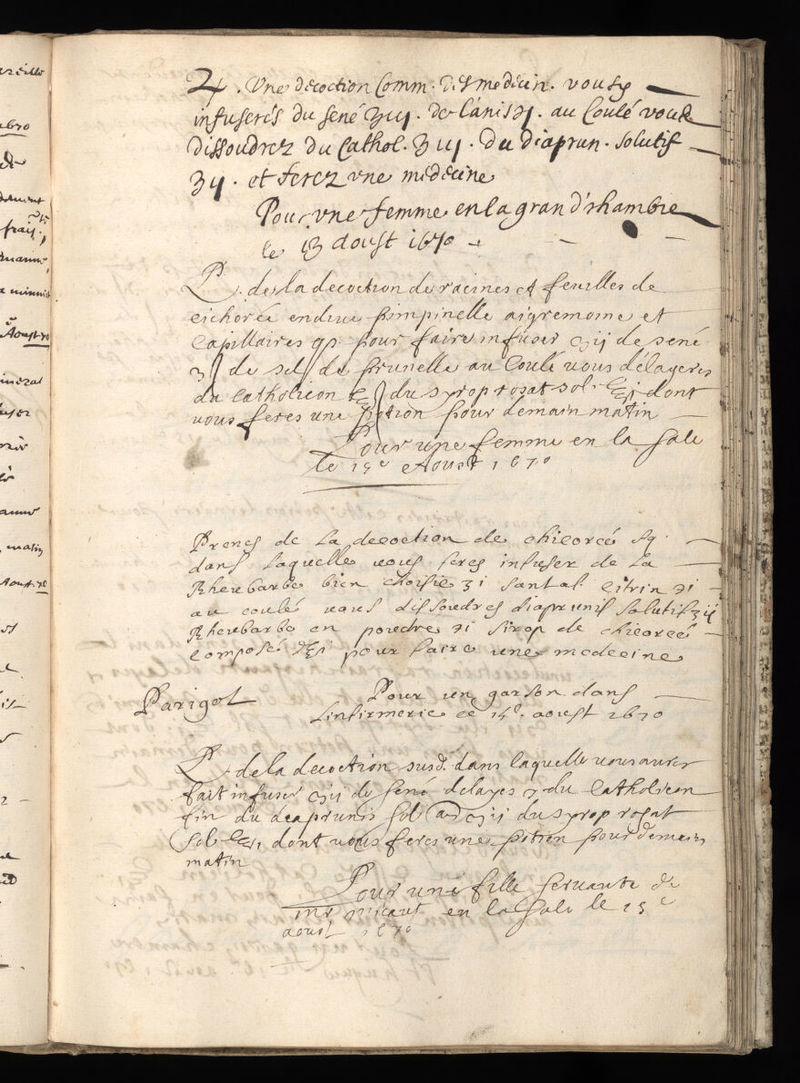 ♃. Une decoction Comm. medicin. vous y
infuserés du sené ʒiij. de l'anis ʒj. au Coulé vous
dissoudrez du Cathol. ʒiij. du diaprun. solutif
ʒij. et ferez une medecine
Pour une femme en la grand chambre
le 13 aoust 1670
♃. de la decoction de racines et feuilles de
cichorée endive pimpinelle aigremoine et
capillaires qs pour faire infuser ʒij de sené
de sel de prunelle au coulé vous délayeres
du catholicon du syrop rosat sol. ℥j dont
vous feres une potion pour demain matin
Pour une femme en la sale
le 15e Aoust 1670
Prenes de la decoction de chicorée
dans laquelle vous feres infuser de la
Rheubarbe bien choisie ʒi santal citrin ℈i
au coulé vous dissoudres diaprunis solutif ʒij
Rheubarbe en poudre ℈i sirop de chicoreé
composé ℥i pour faire une medecine
Parigot
Pour un garson dans
Linfirmerie ce 15e. aoust 1670
♃ de la decoction susd. dans laquelle vous aures
fait infuser ʒij de sené delayes du catholicon
fin du diaprunis sol ʒij du syrop rosat
sol ℥j, dont vous feres une potion pour demain
matin
Pour une fille servante de
mr en la sale le 15e
aoust 1670